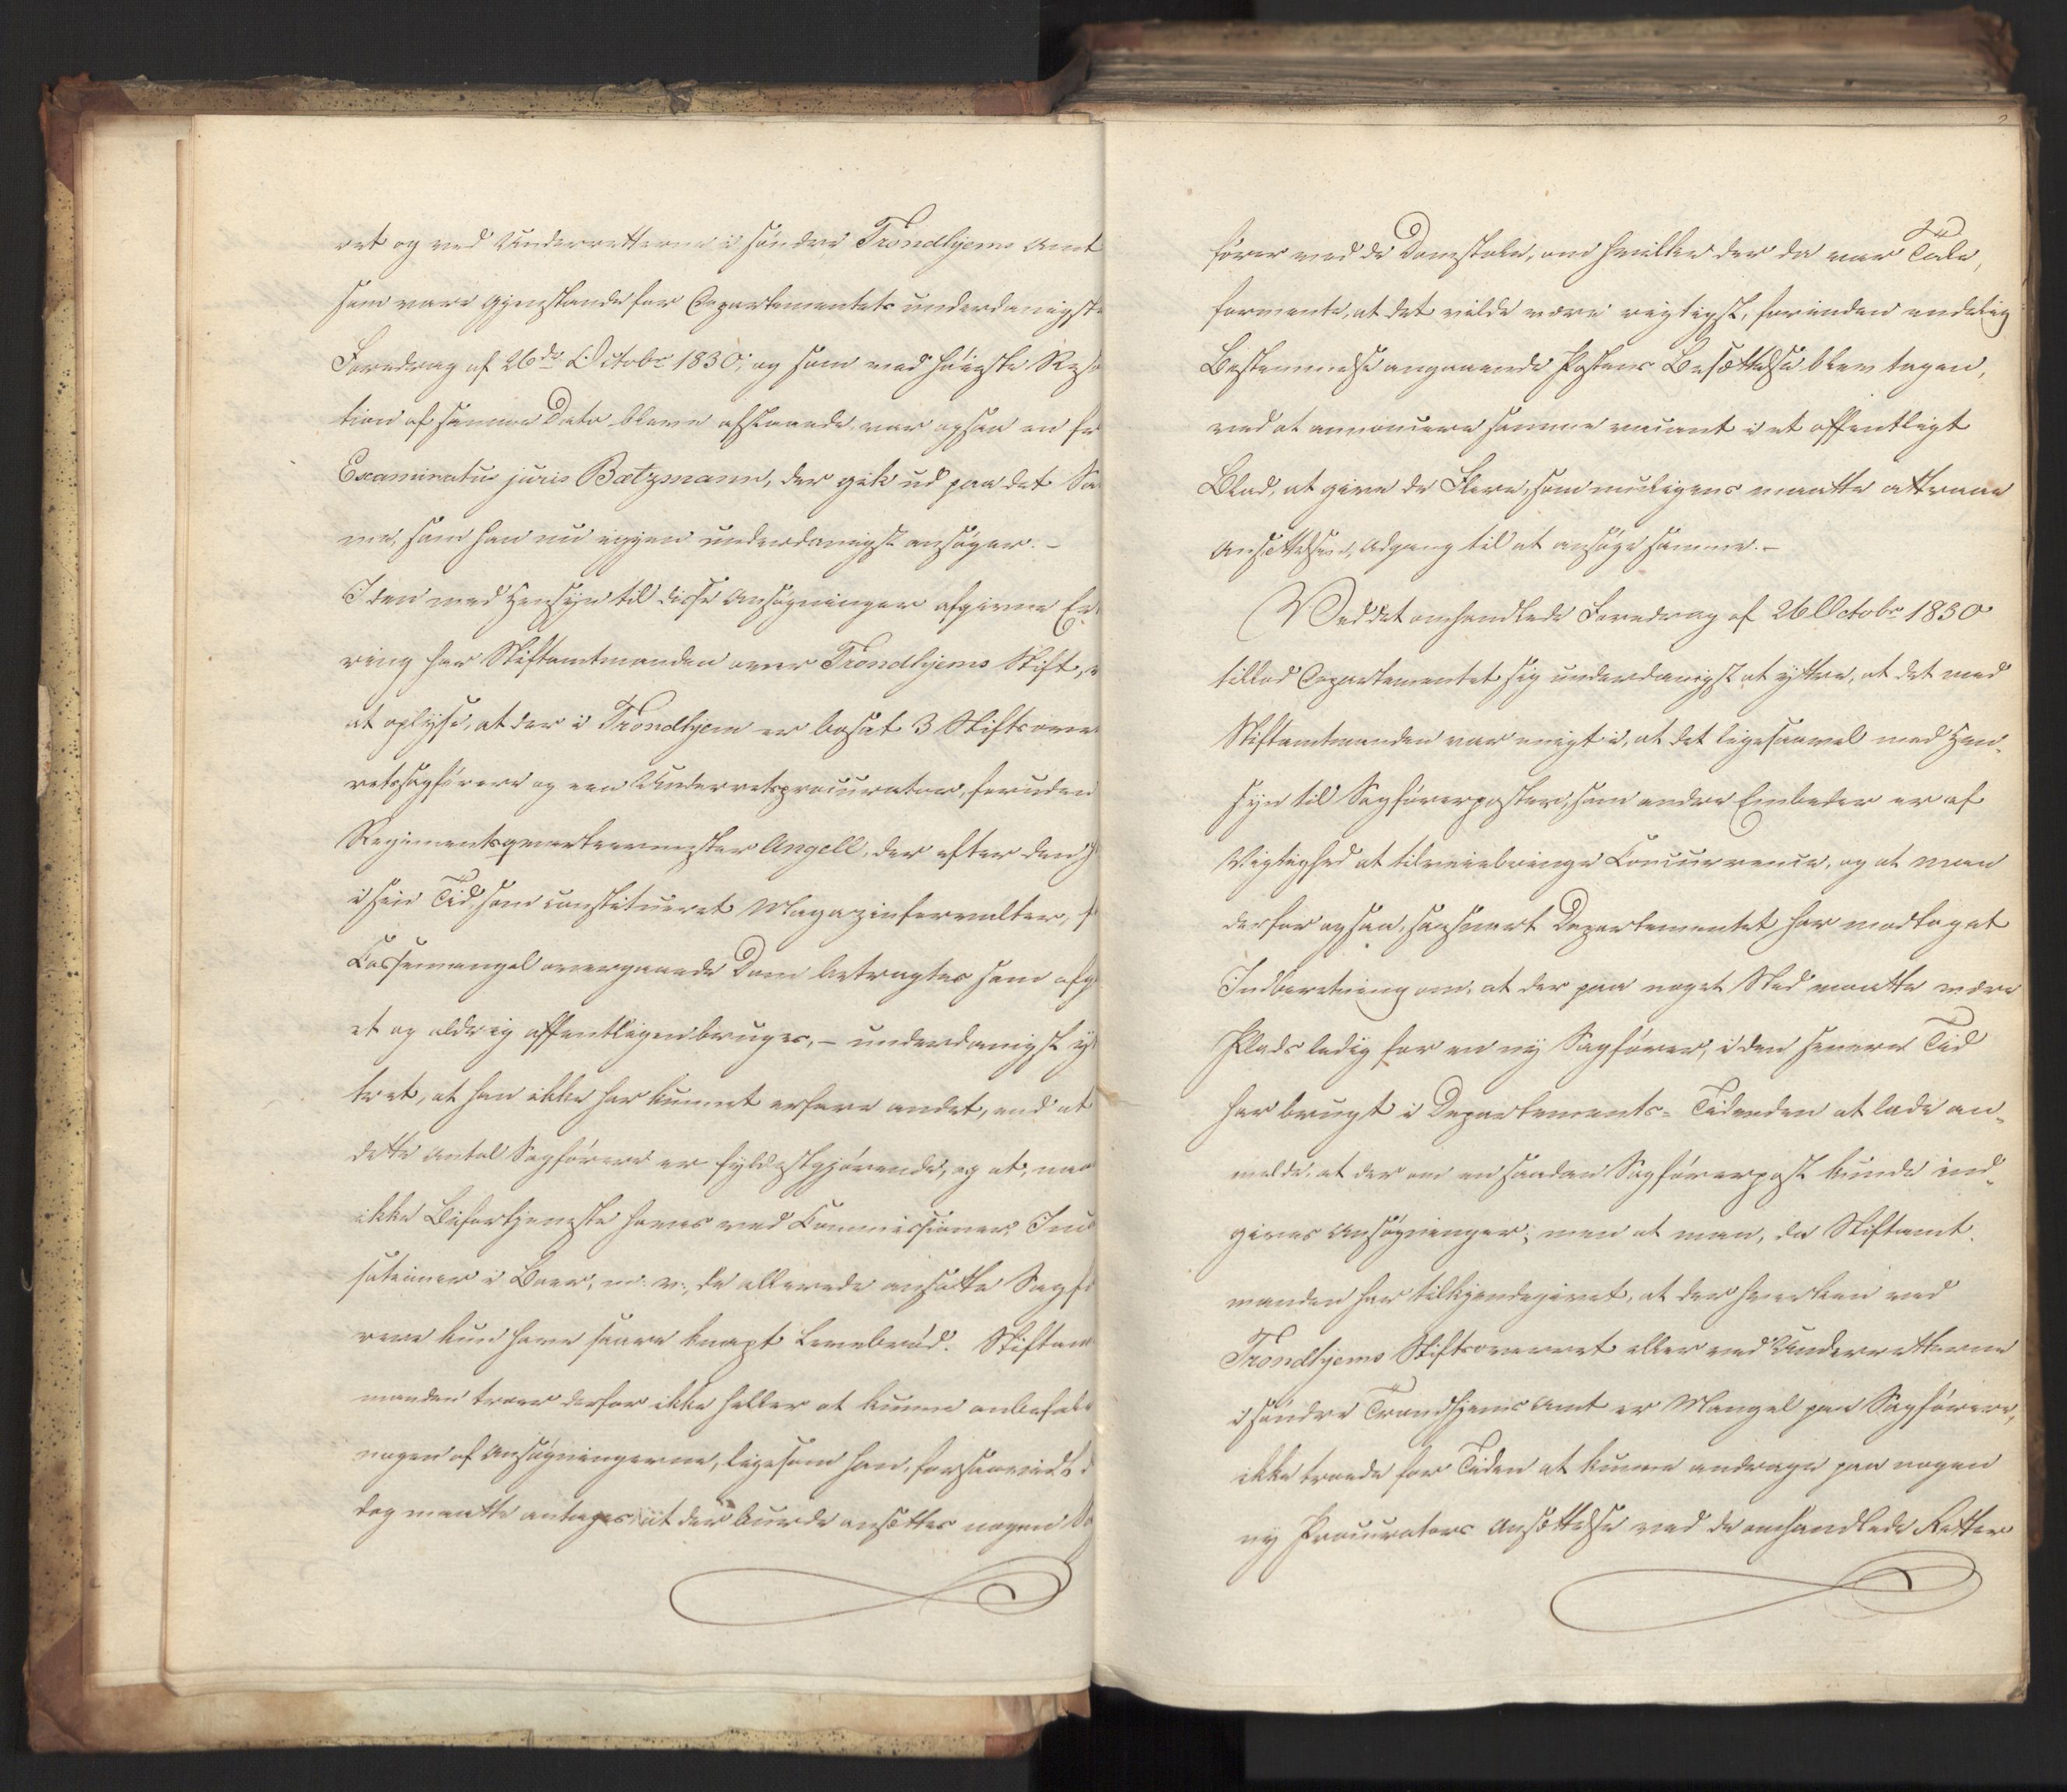 ret og ved Underretterne i søndre Trondhjems Amt
som vare Gjenstande for Departementets underdanigste
Foredrag af 26de Octobr 1830, og som ved høieste Reso
tion af samme Dato bleve afslaaede, var ogsaa en fr
Examinatus juris Batzmann, der gik ud paa det Sa
me, som han nu igjen underdanigst ansøger. –
I den med Hensyn til disse Ansøgninger afgivne Er
ring har Stiftamtmanden over Trondhjems Stift, e
at oplyse, at der i Trondhjem er bosat 3 Stiftsover
retssagførere og een Underretsprocurator, foruden
Regimentsqvarteermester Angell, der efter den h
i sin Tid, som constitueret Magazinforvalter, f
Cassemangel overgaaede Dom betragtes som afg
et og aldrig offentligen bruges, – underdanigst ÿt
tret, at han ikke har kunnet erfare andet, end at
dette Antal Sagførere er fyldestgjørende, og at, naa
ikke Bifortjenester haves ved Commissioner, In
cationer i Boer, m: v:, de allerede ansatte Sagfø
rere kun have saare knapt Levebrød. Stiftam
manden troer derfor ikke heller at kunne anbefale
nogen af Ansøgningerne, ligesom han, forsaavidt d
dog maatte antages at der burde ansættes nogen Sa
fører ved de Domstole, om hvilke der da var Tale,
formente, at det vilde være rigtigst, forinden endelig
Bestemmelse angaaende Postens Besættelse blev tagen,
ved at annoncere samme vacant i et offentligt
Blad, at give de Flere, som muligens maatte attraae
Ansættelsen, Adgang til at ansøge samme. –
Ved det omhandlede Foredrag af 26 Octobr 1830
tillod Departementet sig underdanigst at yttre, at det med
Stiftamtmanden var enigt i, at det ligesaavel med Hen-
syn til Sagførerposter, som andre Embeder er af
Vigtighed at tilveiebringe Concurrence, og at man
derfor ogsaa, saasnart Departementet har modtaget
Indberetning om, at der paa noget Sted maatte være
Plads ledig for en ny Sagfører, i den senere Tid
har brugt i Departements-Tidenden at lade an-
melde, at der om en saadan Sagførerpost kunde ind-
gives Ansøgninger; men at man, da Stiftamt-
manden har tilkjendegivet, at der hverken ved
Trondhjems Stiftsoverret eller ved Underretterne
i søndre Trondhjems Amt er Mangel paa Sagførere,
ikke troede for Tiden at kunne andrage paa nogen
ny Procurators Ansættelse ved de omhandlede Retter